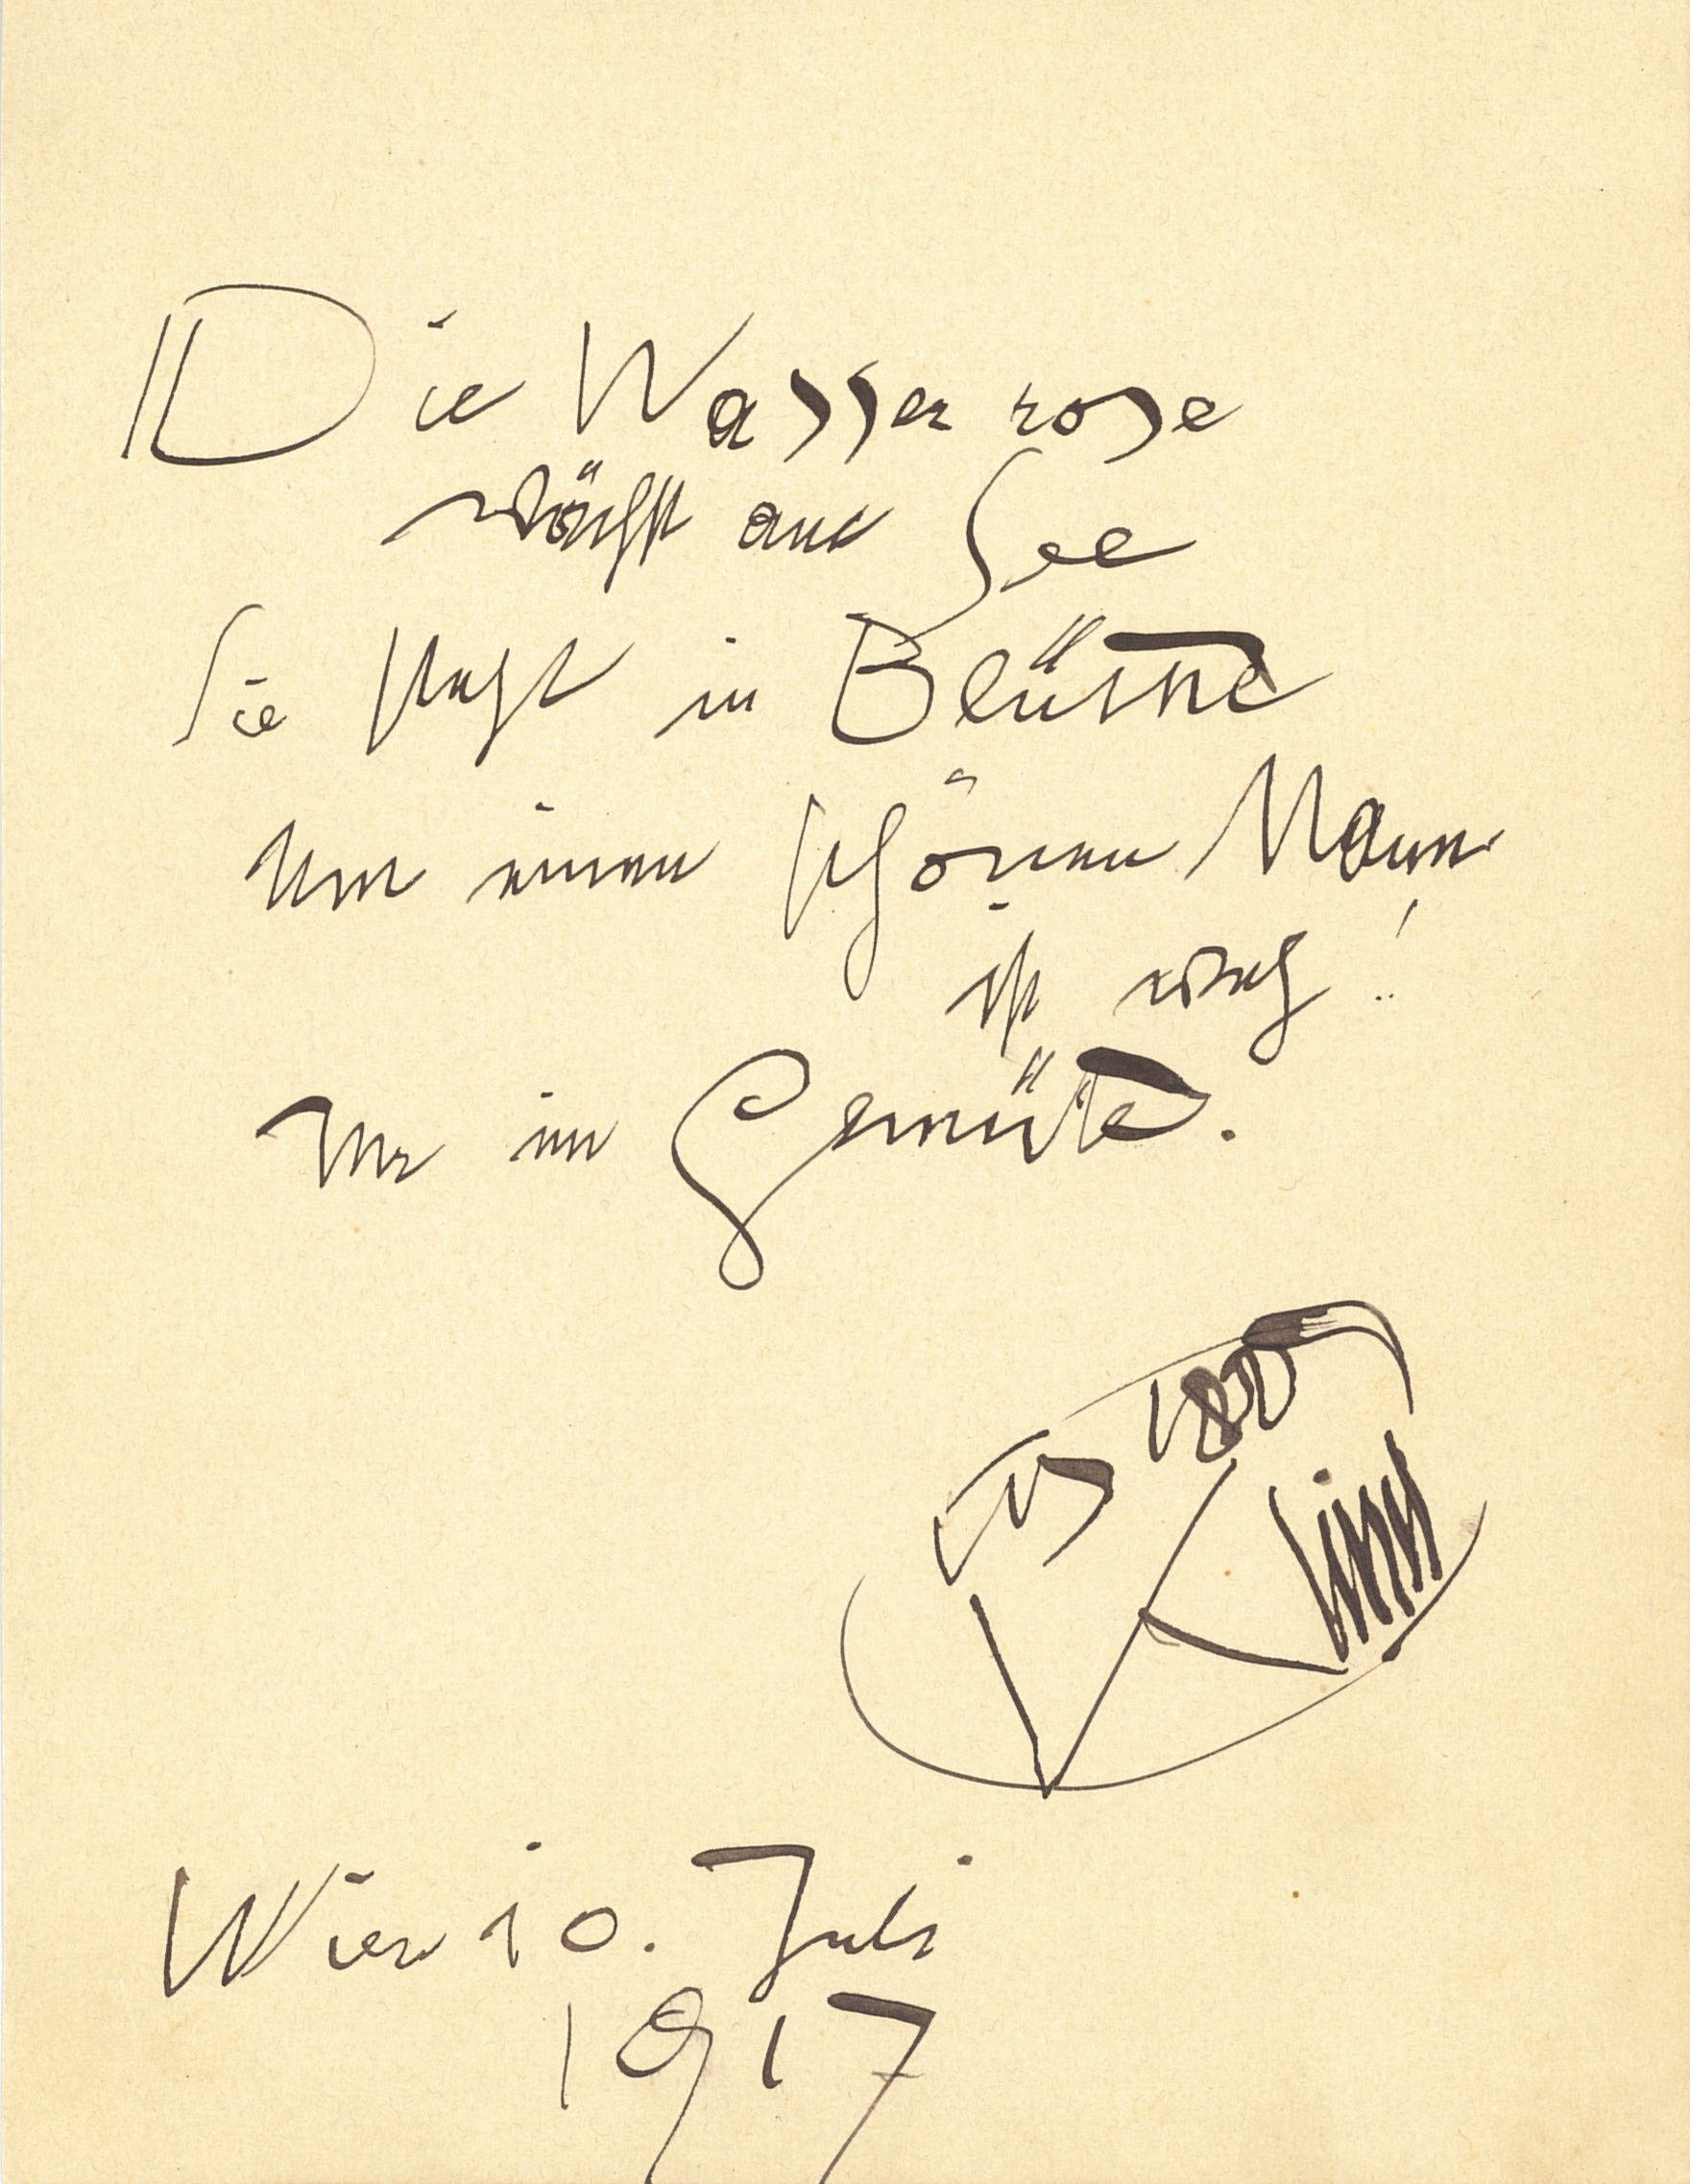 Die Wasser rose
wächst am See
Sie steht in Blüthe
Um einen schönen Mann
ist weh!
Mir im Gemüte.
Wien 10. Juli
1917